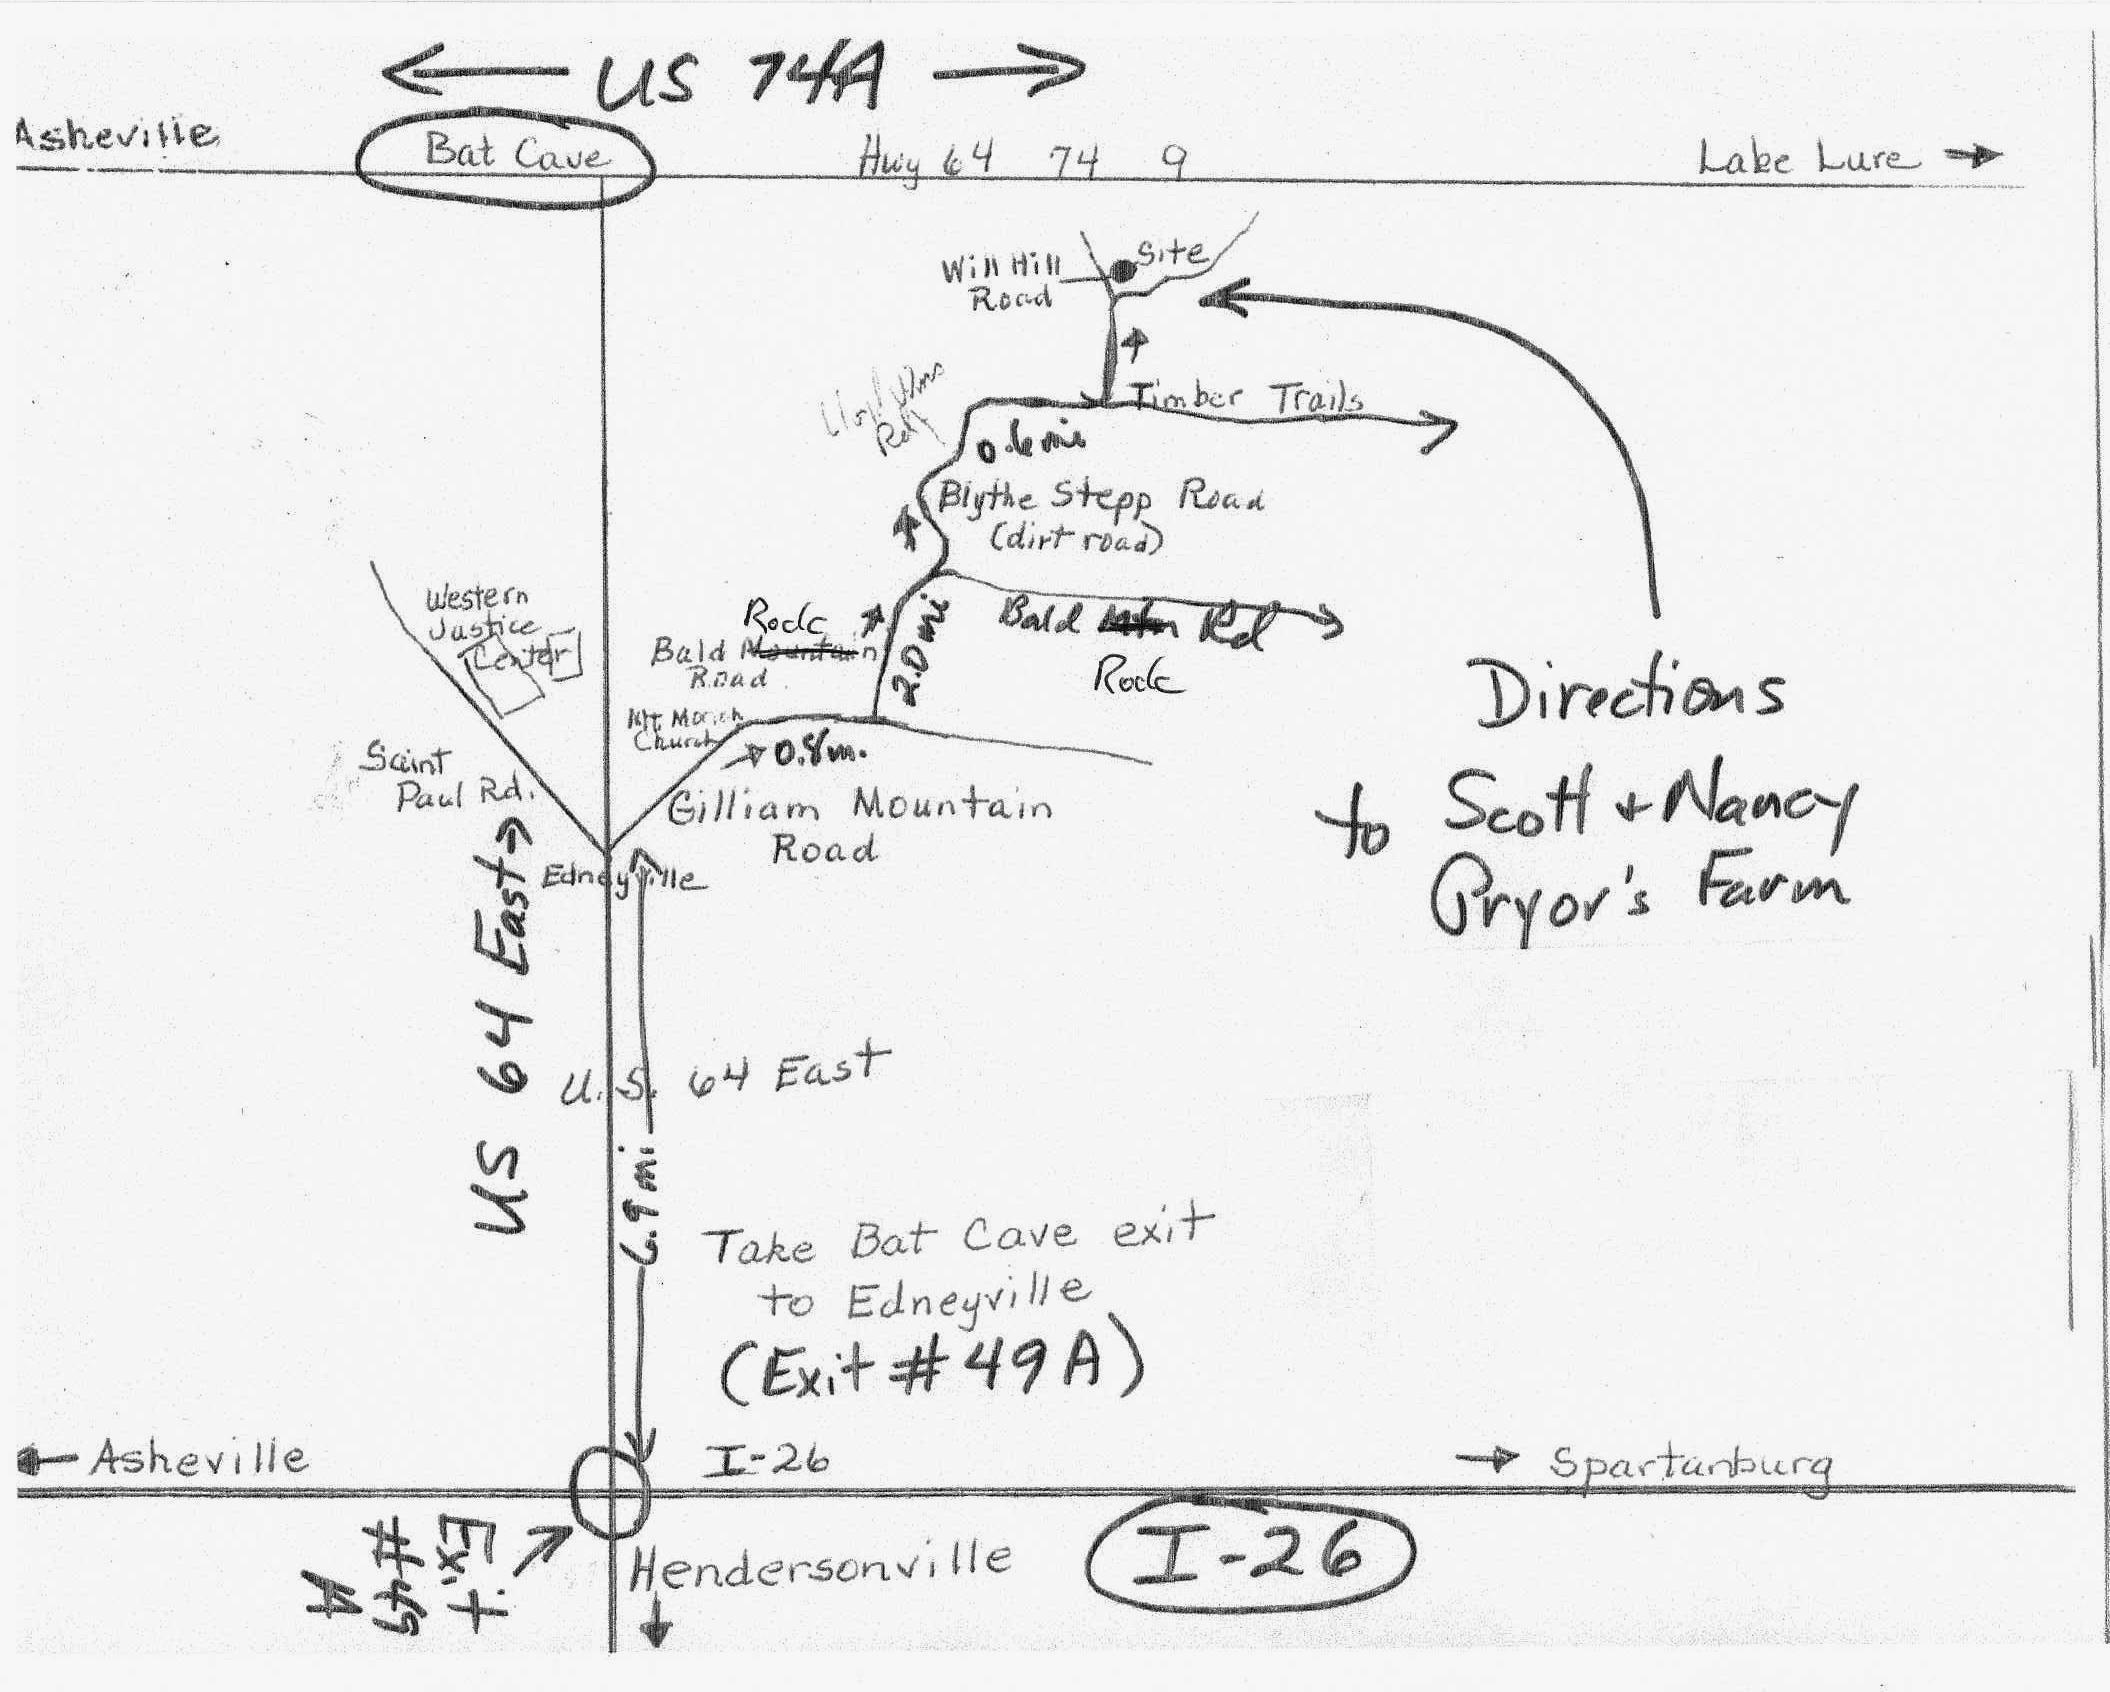 US 74A
Asheville
Bat Cave
Hwy 64 74 9
Lake Lure
Site
Will Hill
Road
Timber Trails
Rd
0.6 mi
Blythe Stepp Road
(dirt road)
Western
Justice
Center
Rock
Bald Mountain
Road
2.0 mi
Bald Mtn Rd
Rock
Mt. Moriah
Church
0.8 m.
Saint
Paul Rd.
Gilliam Mountain
Road
Edneyville
Directions
to Scott + Nancy
Pryor's Farm
US 64 East
U.S. 64 East
6.9 mi
Take Bat Cave exit
to Edneyville
(Exit # 49 A)
Asheville
I-26
Spartanburg
Exit
# 49
A
Hendersonville
I-26